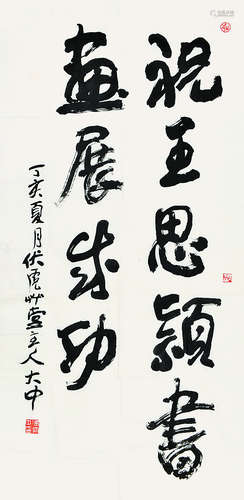 祝王思颖书
画展成功
丁亥夏月伏虎草堂主人大中